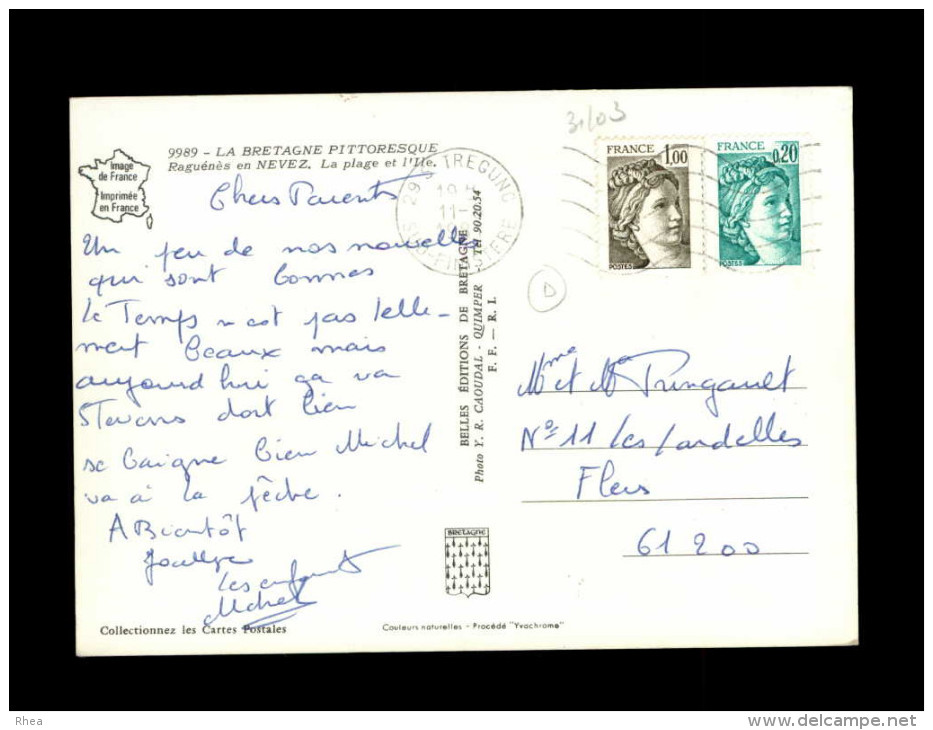 31/03
9989 - LA BRETAGNE PITTORESQUE
Raguénès en NEVEZ. La plage et l'Ile.
Image
de France
Imprimée
en France
FRANCE 1,00
POSTES
FRANCE 0,20
POSTES
29 S TREGUNC
11-
SUD-FINISTERE
D
Chers Parents
Un peu de nos nouvelles
qui sont bonnes
Le Temps n est pas telle-
ment beaux mais
aujourd hui ça va
dort bien
se baigne bien Michel
va à la pêche.
A Bientôt
Joëlle
Les enfants
Michel
BELLES ÉDITIONS DE BRETAGNE
Photo Y. R. CAOUDAL - QUIMPER - Tél 90.20.54
F. F. — R. I.
Mme et Mr Pringault
N° 11 Les
Flers
61 200
BRETAGNE
Collectionnez les Cartes Postales
Couleurs naturelles - Procédé "Yvochrome"
Rhea
www.delcampe.net